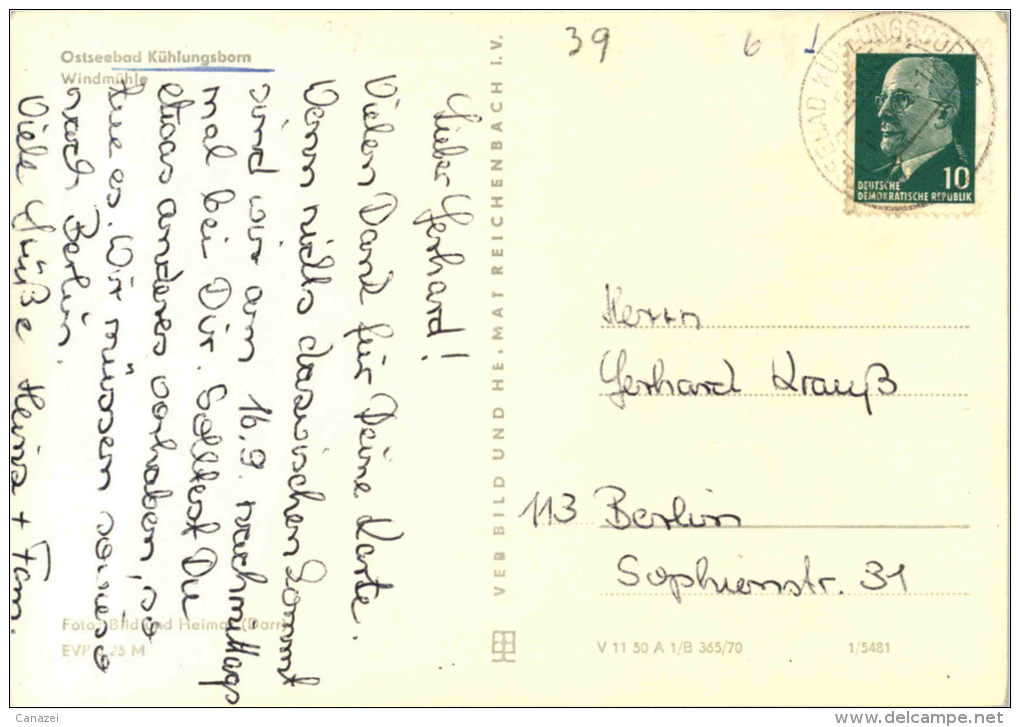 Ostseebad Kühlungsborn
Windmühle
Lieber Gerhard!
Vielen Dank für Deine Karte.
Wenn nichts dazwischen kommt
sind wir am 16.9. nachmittags
mal bei Dir. Solltest Du
etwas anderes vorhaben, so
tue es. Wir müssen sowieso
nach Berlin.
Viele Grüße Heinz + Fam.
Foto: Bild und Heimat (Darr)
EVP 0,25 M
VEB BILD UND HEIMAT REICHENBACH I. V.
39
6
DEUTSCHE
DEMOKRATISCHE REPUBLIK
10
Herrn
Gerhard Krauß
113 Berlin
Sophienstr. 31
V 11 50 A 1/B 365/70
1/5481
Canazei
www.delcampe.net